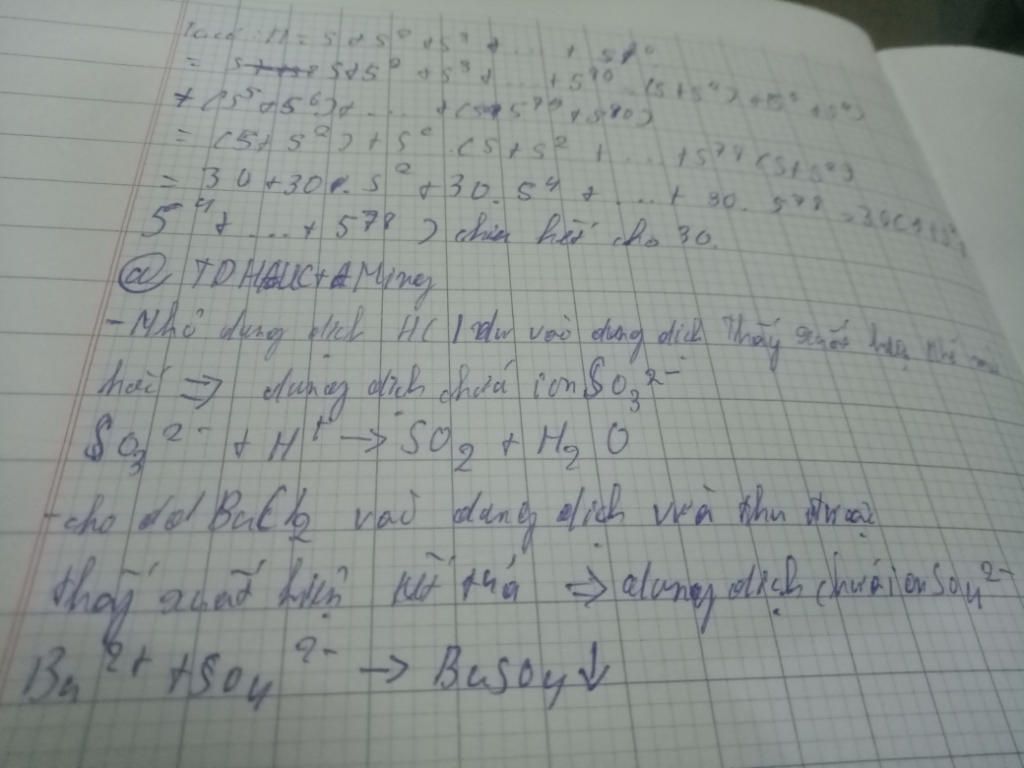 = 5 + 5² + 5³ + ... + 5⁸⁰ = (5 + 5²) + (5³ + 5⁴)
+ (5⁵ + 5⁶) + ... + (5⁷⁹ + 5⁸⁰)
= (5 + 5²) + 5² . (5 + 5² + ... + 5⁷⁸ (5 + 5²)
= 30 + 30 . 5² + 30 . 5⁴ + ... + 30 . 5⁷⁸ = 30(1 + 5²
5⁴ + ... + 5⁷⁸) chia hết cho 30.
- Nhỏ dung dịch HCl dư vào dung dịch thấy xuất hiện khí mùi
hắc ⇒ dung dịch chứa ion SO₃²⁻
SO₃²⁻ + H⁺ → SO₂ + H₂O
- cho dd BaCl₂ vào dung dịch vừa thu được
thấy xuất hiện kết tủa ⇒ dung dịch chứa ion SO₄²⁻
Ba²⁺ + SO₄²⁻ → BaSO₄↓